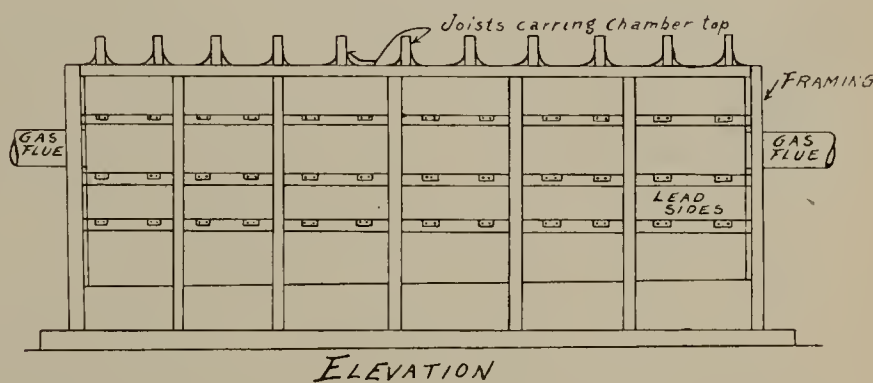 Joists carring Chamber top
FRAMING
GAS
FLUE
GAS
FLUE
LEAD
SIDES
ELEVATION